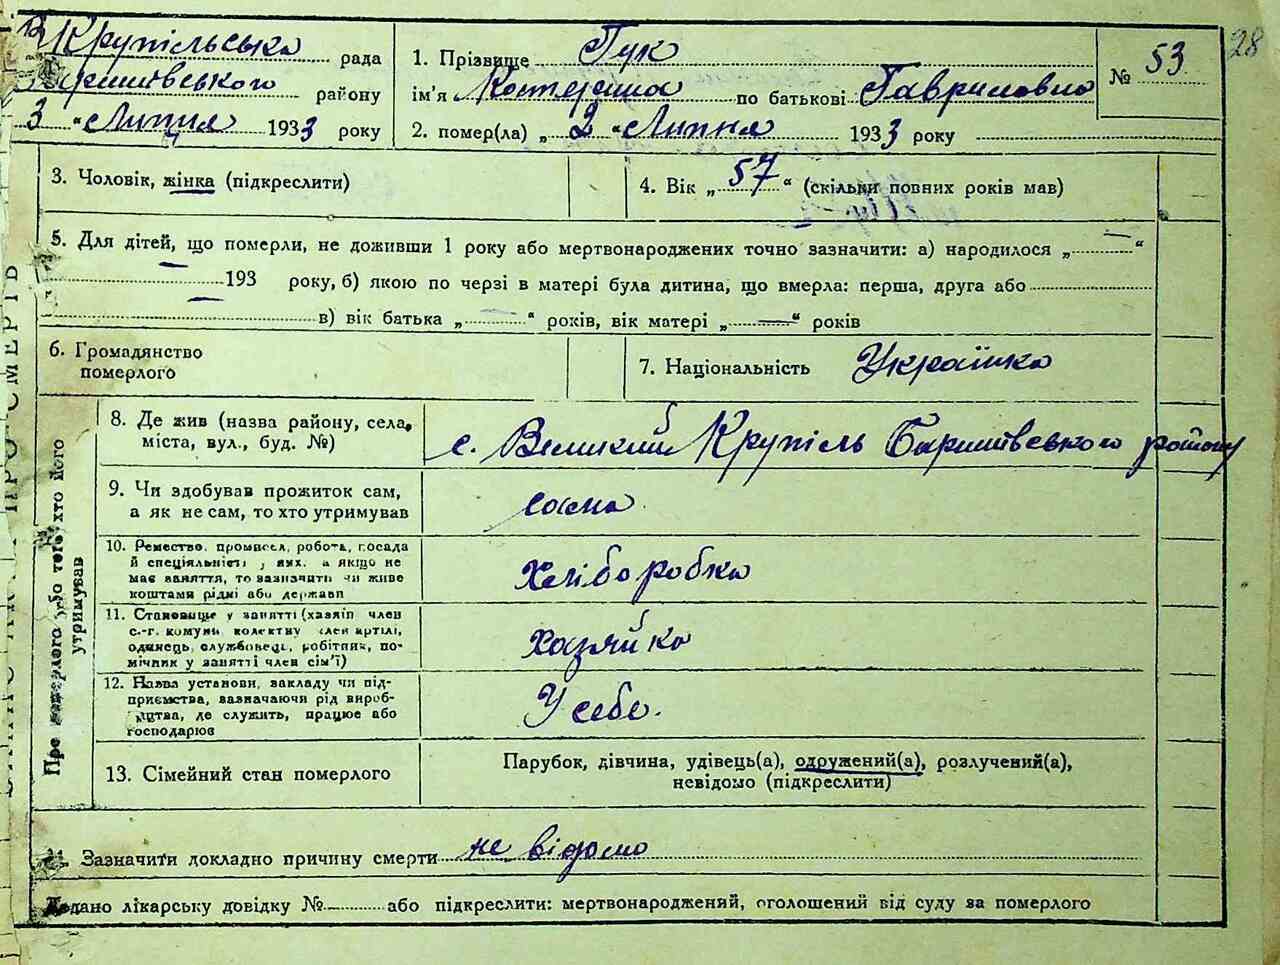 В Крупільська рада
Баришівського району
3 "Липня 1933 року
1. Прізвище Гук
ім'я Катерина по батькові Гавриловна
2. помер(ла) „ 2 "Липня 1933 року
№ 53
28
3. Чоловік, жінка (підкреслити)
4. Вік „ 57 " (скільки повних років мав)
5. Для дітей, що померли, не доживши 1 року або мертвонароджених точно зазначити: а) народилося „ — "
193 року, б) якою по черзі в матері була дитина, що вмерла: перша, друга або
в) вік батька „ — " років, вік матері „ — " років
6. Громадянство
померлого
7. Національність Українка
Про померлого або того, хто його
утримував
8. Де жив (назва району, села,
міста, вул., буд. №)
с. Великий Крупіль Баришівського району
9. Чи здобував прожиток сам,
а як не сам, то хто утримував
сама
10. Ремество, промисел, робота, посада
й спеціяльність у них, а якщо не
має заняття, то зазначити чи живе
коштами рідні або держави
Хліборобка
11. Становище у занятті (хазяїн член
с.-г. комуни, колективу член артілі,
одинець, службовець, робітник, по-
мічник у занятті член сім'ї)
хазяйка
12. Назва установи, закладу чи під-
приємства, зазначаючи рід вироб-
ництва, де служить, працює або
господарює
У себе.
13. Сімейний стан померлого
Парубок, дівчина, удівець(а), одружений(а), розлучений(а),
невідомо (підкреслити)
14. Зазначити докладно причину смерти не відомо
Додано лікарську довідку № або підкреслити: мертвонароджений, оголошений від суду за померлого